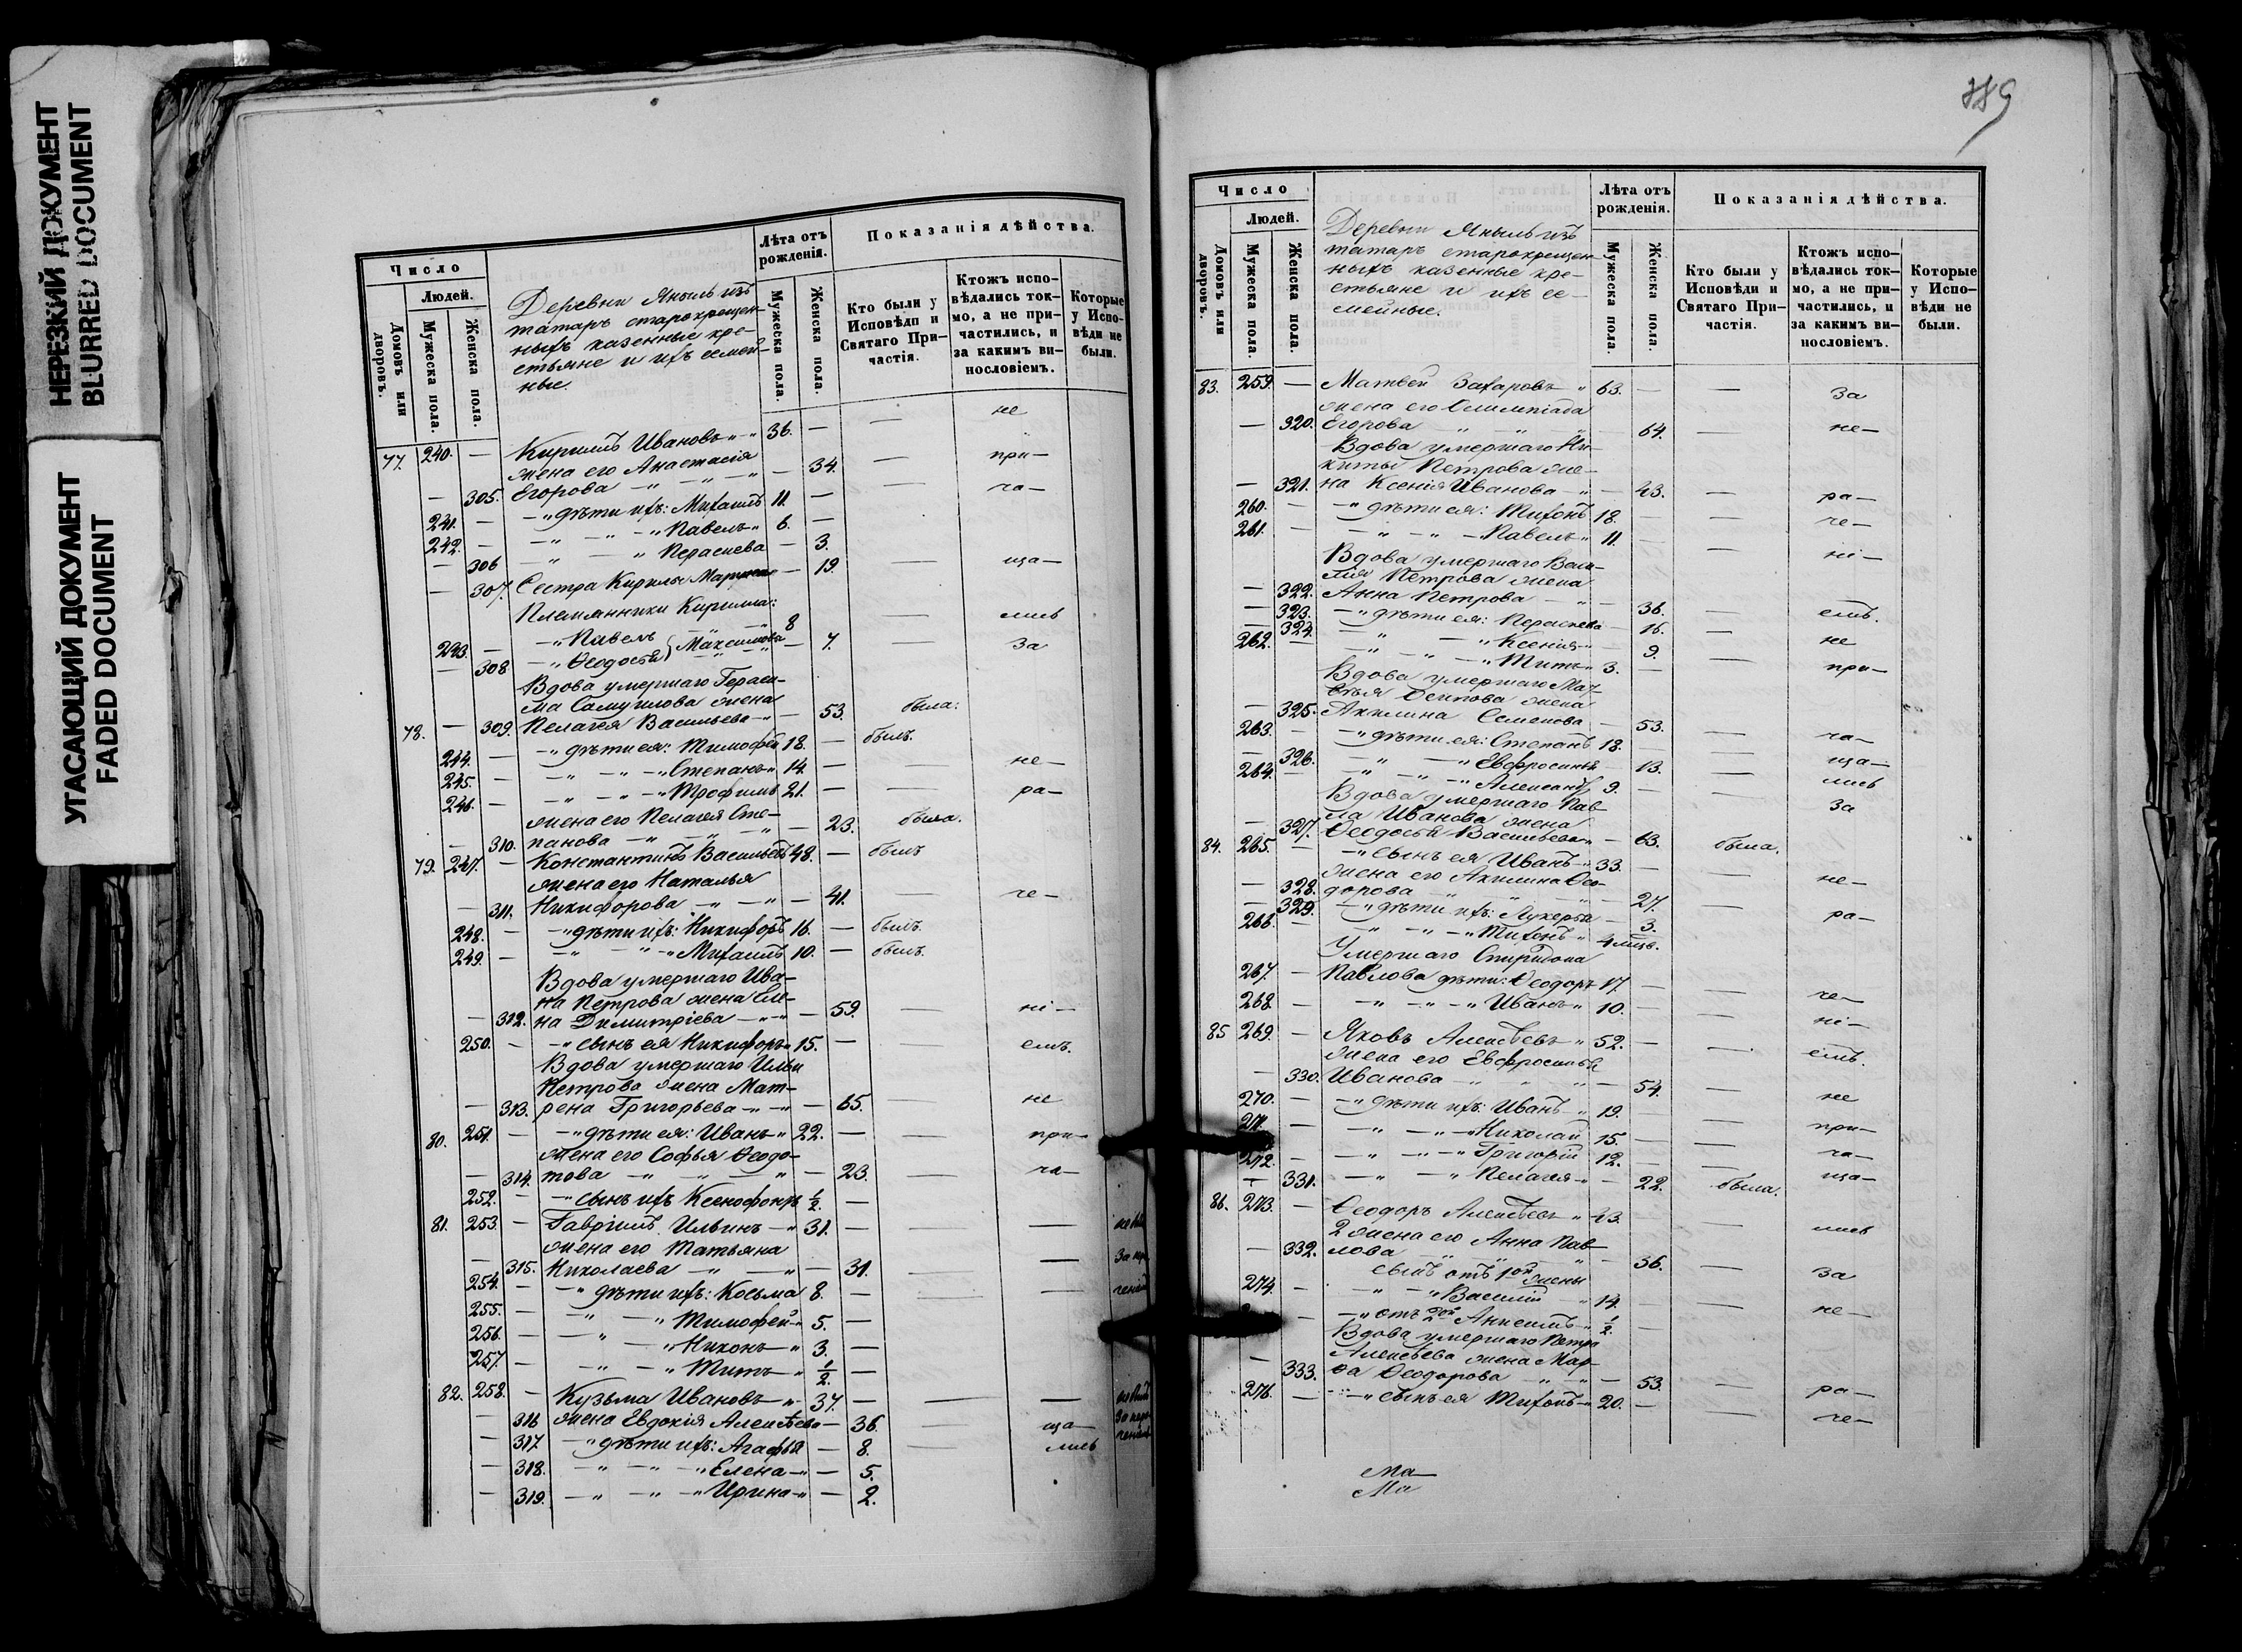 НЕРЕЗКИЙ ДОКУМЕНТ
BLURRED DOCUMENT
УГАСАЮЩИЙ ДОКУМЕНТ
FADED DOCUMENT
Число
Людей.
Домовъ или дворовъ.
Мужеска пола.
Женска пола.
Деревни Яныль изъ
татаръ старокрещен-
ныхъ казенные кре-
стьяне и ихъ семей-
ные.
Лѣта отъ рожденія.
Мужеска пола.
Женска пола.
Показанія дѣйства.
Кто были у Исповѣди и Святаго При-частія.
Ктожъ испо-вѣдались ток-мо, а не при-частились, и за какимъ ви-нословіемъ.
Которые у Испо-вѣди не были.
77. 240. — Кириллъ Ивановъ 36. — — не
жена его Анастасія
— 305. Егорова — 34. — при-
241. — дѣти ихъ: Михаилъ 11. — ча-
242. — Павелъ 6. —
— 306 Параскева — 3.
— 307. Сестра Кирилы — 19. — ща-
Племянники Кирилла:
243. — Павелъ 8 — лись
— 308 Ѳеодосія } Максимова — 7. — За
Вдова умершаго Гераси-
ма Самуилова жена
78. — 309. Пелагея Васильева — 53. была.
244. — дѣти ея: Тимофей 18. — былъ.
245. — Степанъ 14. — — не-
246. — Трофимъ 21. — — ра-
жена его Пелагея Сте-
— 310. панова — 23. была.
79. 247. — Константинъ Васильевъ 48. — былъ
жена его Наталья
— 311. Никифорова — 41. — че-
248. — дѣти ихъ: Никифоръ 16. — былъ.
249. — Михаилъ 10. — былъ.
Вдова умершаго Ива-
на Петрова жена Еле-
— 312. на Димитріева — 59. — ні-
250. — сынъ ея Никифоръ 15. — — емъ.
Вдова умершаго Ильи
Петрова жена Мат-
— 313. рена Григорьева — 65. — не
80. 251. — дѣти ея: Иванъ 22. — — при-
жена его Софья Ѳеодо-
— 314. това — 23. — ча-
252. — сынъ ихъ Ксенофонтъ 1/2. —
81. 253. — Гавріилъ Ильинъ 31. — —
жена его Татьяна
— 315. Николаева — 31. — —
254. — дѣти ихъ: Косьма 8. — — —
255. — Тимофей 5. —
256. — Никонъ 3. —
257. — Титъ 1/2. —
82. 258. — Кузьма Ивановъ 37. — — —
— 316 жена Евдокія Алексѣева — 36. — ща-
— 317. дѣти ихъ: Агафья — 8. — лись
— 318. Елена — 5.
— 319. Ирина — 2.
Число
Людей.
Домовъ или дворовъ.
Мужеска пола.
Женска пола.
Деревни Яныль изъ
татаръ старокрещен-
ныхъ казенные кре-
стьяне и ихъ се-
мейные.
Лѣта отъ рожденія.
Мужеска пола.
Женска пола.
Показанія дѣйства.
Кто были у Исповѣди и Святаго При-частія.
Ктожъ испо-вѣдались ток-мо, а не при-частились, и за какимъ ви-нословіемъ.
Которые у Испо-вѣди не были.
83. 259. — Матвей Захаровъ 63. — — За
жена его Олимпіада
— 320. Егорова — 64. — не-
Вдова умершаго Ни-
киты Петрова же-
— 321. на Ксенія Иванова — 43. — ра-
260. — дѣти ея: Тихонъ 18. — — че-
261. — Павелъ 11. — — ні-
Вдова умершаго Васи-
лія Петрова жена
— 322. Анна Петрова — 36. — емъ.
— 323. дѣти ея: Параскева — 16. — не
— 324. Ксенія — 9.
262. — Титъ 3. — — при-
Вдова умершаго Мат-
вѣя Осипова жена
— 325. Акилина Семенова — 53. — ча-
263. — дѣти ея: Степанъ 18. — — ща-
— 326. Евфросинья — 13. — лись
264. — Алексѣй 9. — — За
Вдова умершаго Пав-
ла Иванова жена
— 327. Ѳеодосія Васильева — 63. была.
84. 265. — сынъ ея Иванъ 33. — — не-
жена его Акилина Ѳео-
— 328. дорова — 27. — ра-
— 329. дѣти ихъ: Лукерья — 3.
266. — Тихонъ 4 мѣс.
Умершаго Спиридона
267. — Павлова дѣти: Ѳеодоръ 17. — — че-
268. — Иванъ 10. — — ні-
85 269. — Яковъ Алексѣевъ 52. — — емъ.
жена его Евфросинья
— 330. Иванова — 54. — не
270. — дѣти ихъ: Иванъ 19. — — при-
271. — Николай 15. — — ча-
272. — Григорій 12. — — ща-
— 331. Пелагея — 22. была.
86. 273. — Ѳеодоръ Алексѣевъ 43. — — лись
2 жена его Анна Пав-
— 332. лова — 36. — За
сынъ отъ 1ой жены
274. — Василій 14. — — не-
— отъ 2ой Анисимъ 1/2. —
Вдова умершаго Петра
Алексѣева жена Мар-
— 333. ѳа Ѳеодорова — 53. — ра-
276. — сынъ ея Тихонъ 20. — — че-
Ма-
Ма